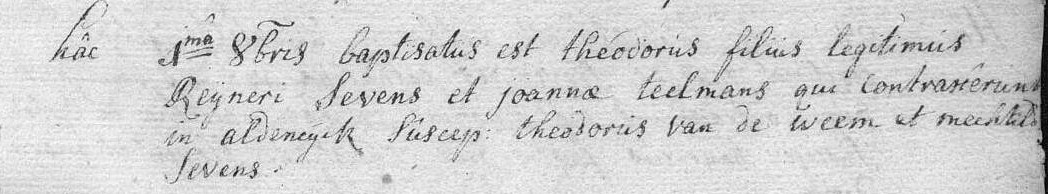 hâc 1mâ 8bris baptisatus est theodorus filius legitimus
Reyneri Sevens et joannæ teelmans qui Contraxêrunt
in aldeneyck Suscep: theodorus van de weem et mechtild
Sevens.